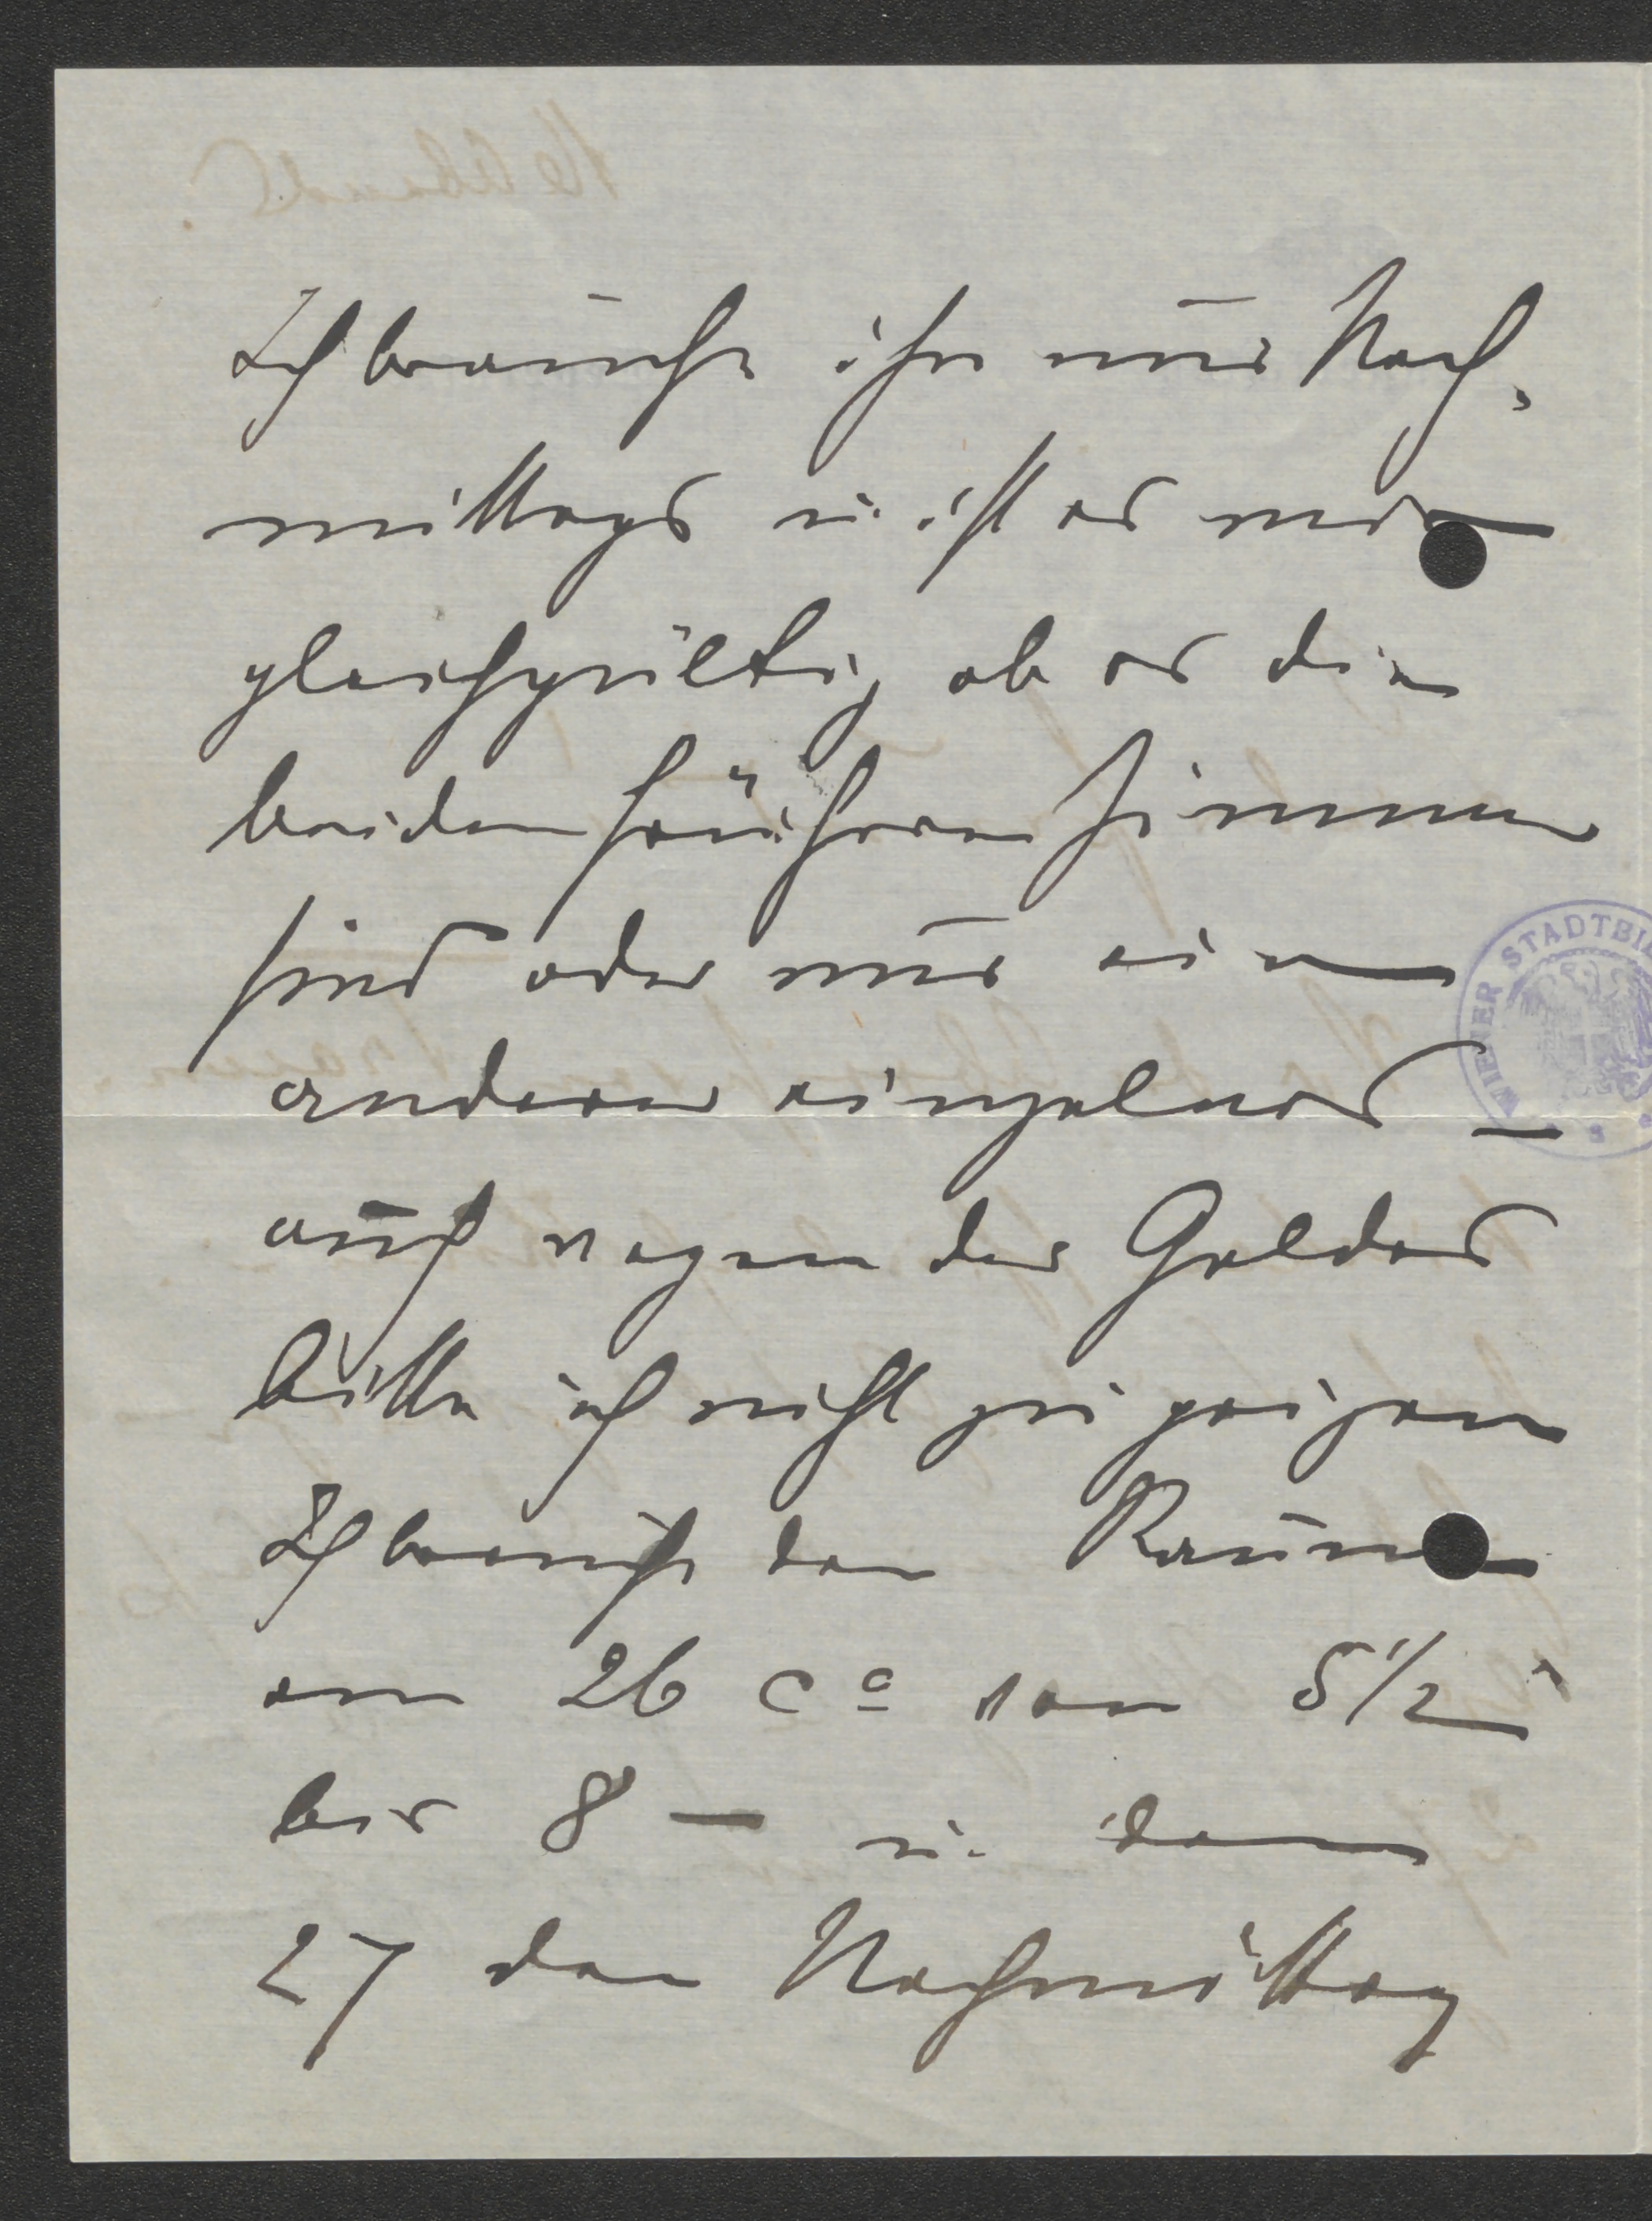 Ich brauche ihn nur Nach-
mittags u. ist es mir
gleichgültig ob es die
beiden früheren Zimmer
sind oder nur ein
anderes einzelnes —
auch wegen des Geldes
bitte ich nicht zu geizen
Ich brauche den Raum
am 26 cª von 5 1/2
bis 8 — u. den
27 den Nachmittag
WIENER STADTBI